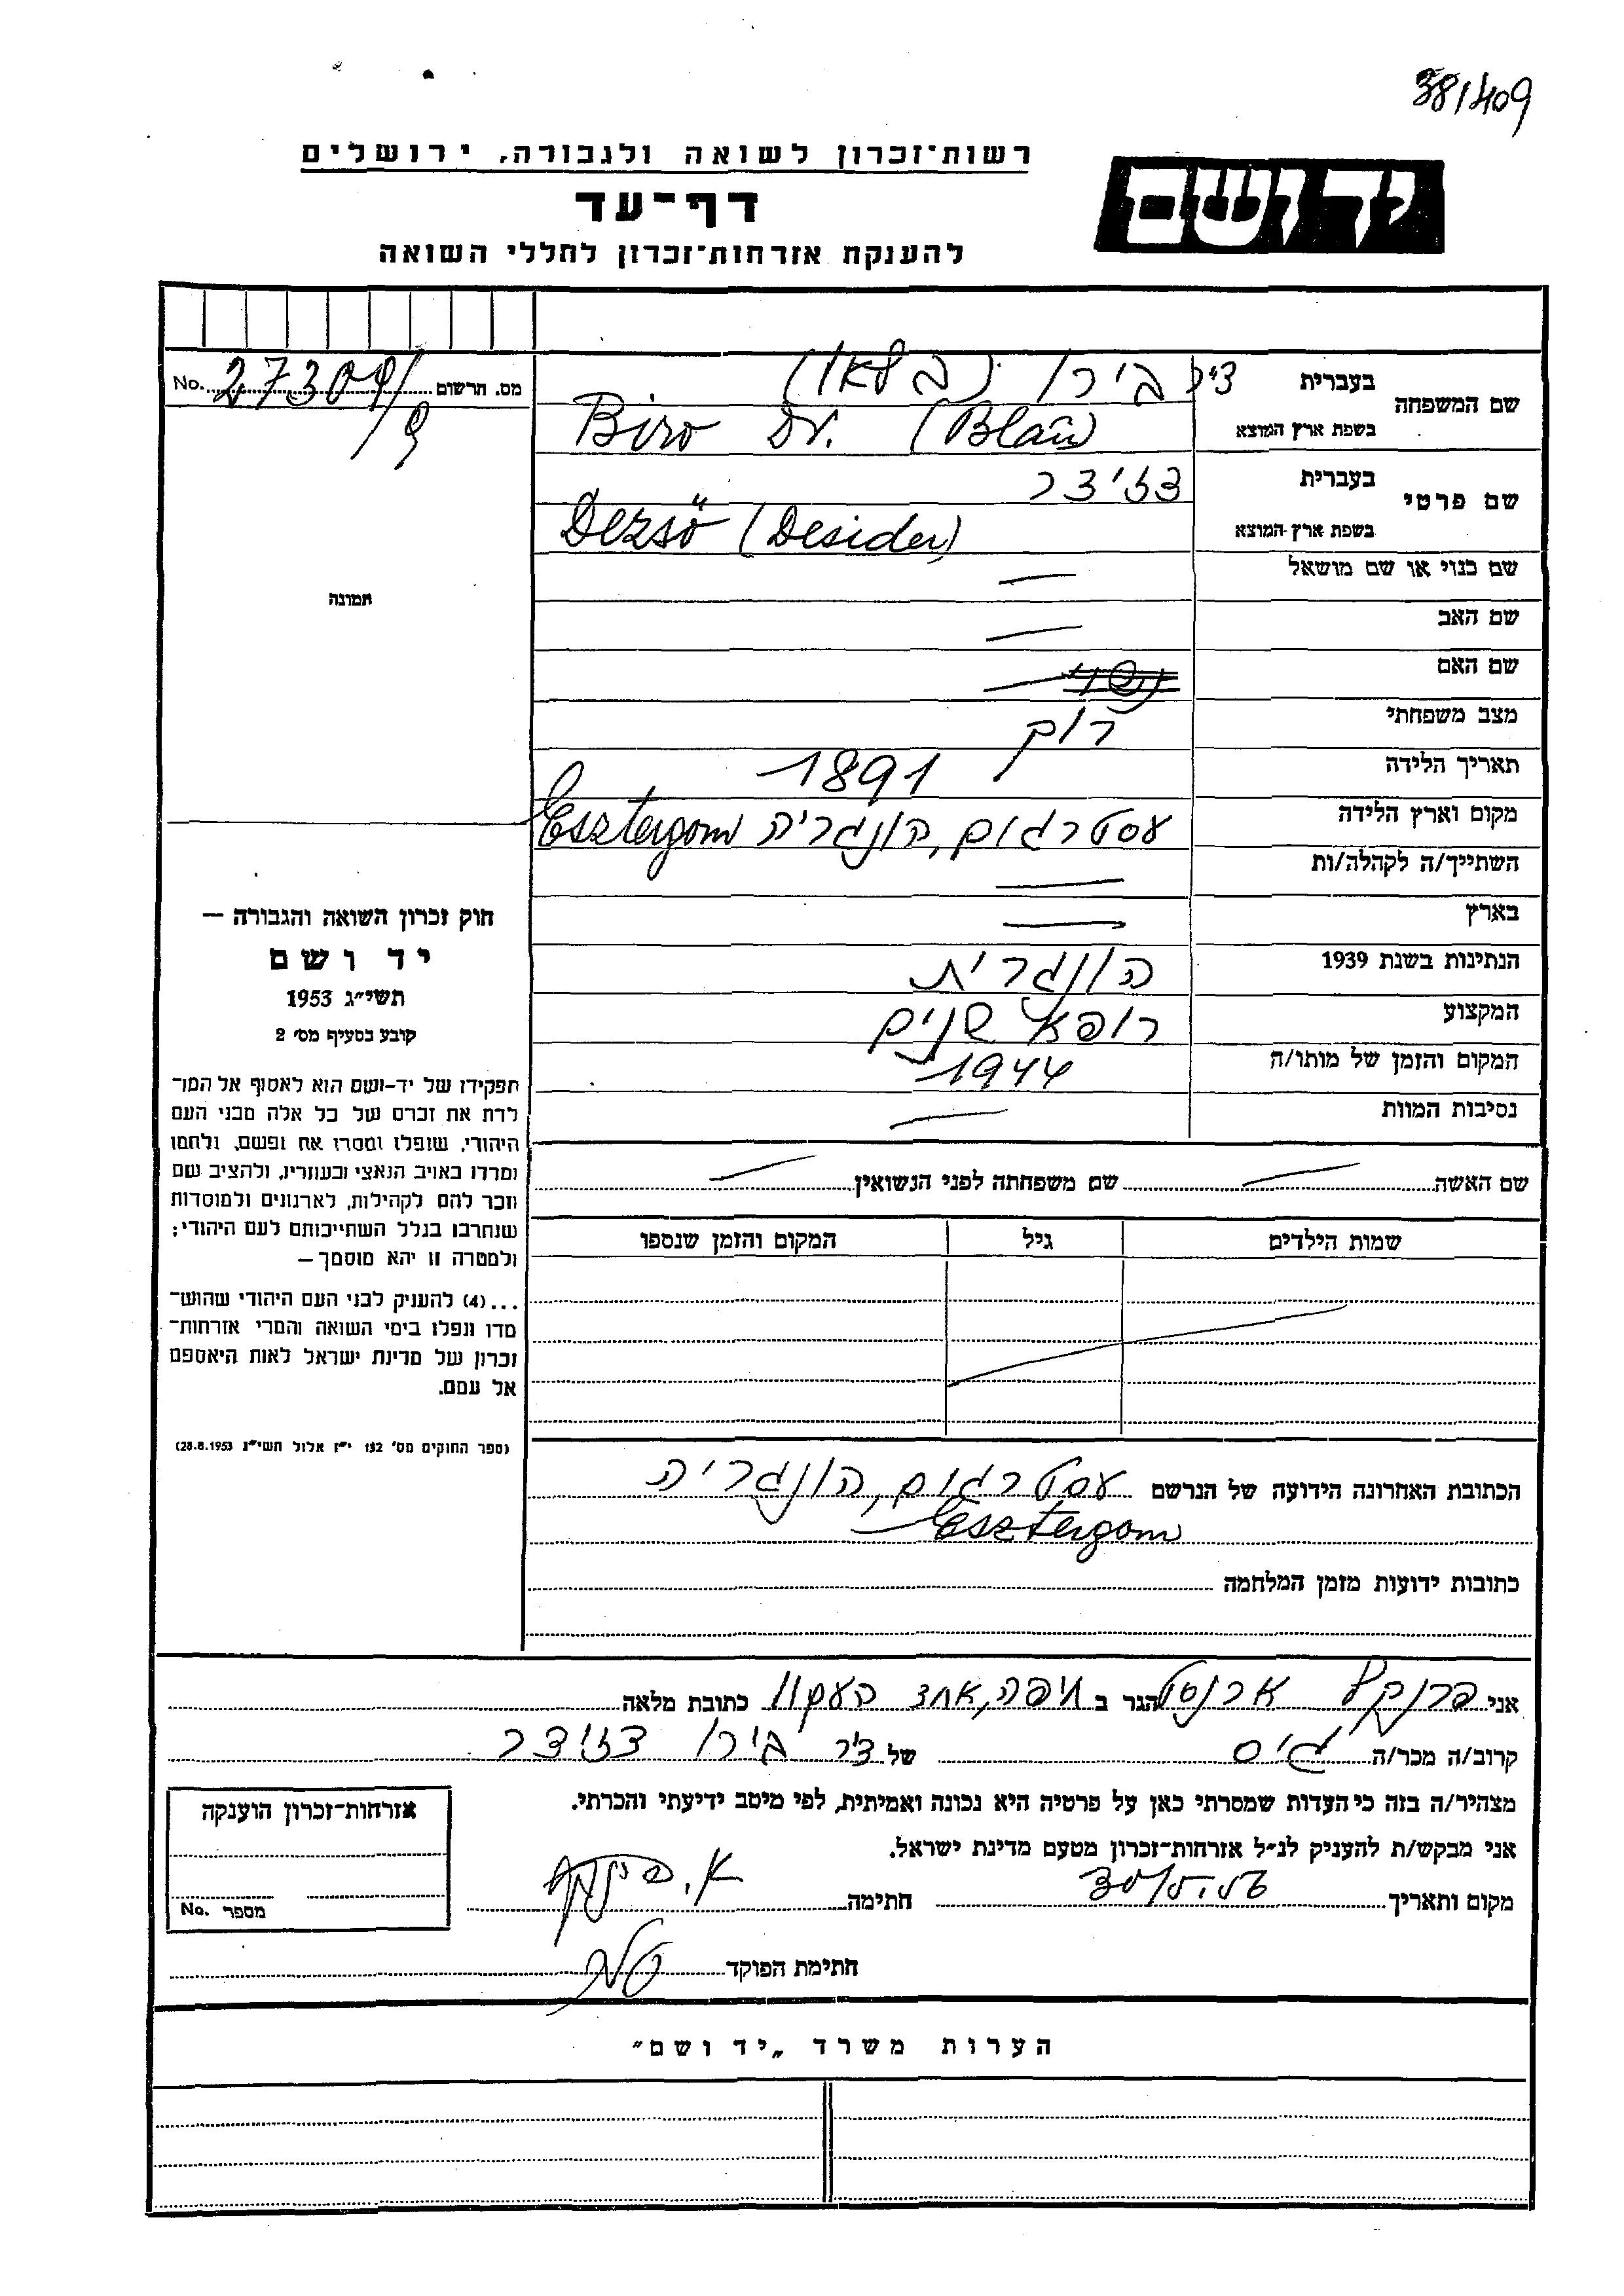 38/409
רשות־זכרון לשואה ולגבורה, ירושלים
יד ושם
דף־עד
להענקת אזרחות־זכרון לחללי השואה
מס. הרשום No. 27304/
שם המשפחה
בעברית ד״ר בירו (בלאו)
בשפת ארץ המוצא Biro Dr. (Blau)
שם פרטי
בעברית דזידר
בשפת ארץ-המוצא Dezső (Desider)
שם כנוי או שם מושאל —
תמונה
שם האב —
שם האם —
מצב משפחתי רוק
תאריך הלידה 1891
מקום וארץ הלידה עסטרגום, הונגריה Esztergom
השתייך/ה לקהלה/ות —
בארץ —
הנתינות בשנת 1939 הונגרית
המקצוע רופא שנים
המקום והזמן של מותו/ה 1944
נסיבות המוות —
שם האשה — שם משפחתה לפני הנשואין —
שמות הילדים גיל המקום והזמן שנספו
חוק זכרון השואה והגבורה —
יד ושם
תשי״ג 1953
קובע בסעיף מס׳ 2
תפקידו של יד-ושם הוא לאסוף אל המו־
לדת את זכרם של כל אלה מבני העם
היהודי, שנפלו ומסרו את נפשם, נלחמו
ומרדו באויב הנאצי ובעוזריו, ולהציב שם
וזכר להם לקהילות, לארגונים ולמוסדות
שנחרבו בגלל השתייכותם לעם היהודי;
ולמטרה זו יהא מוסמך —
...(4) להעניק לבני העם היהודי שהוש־
מדו ונפלו בימי השואה והמרי אזרחות־
זכרון של מדינת ישראל לאות היאספם
אל עמם.
(ספר החוקים מס׳ 132 י״ז אלול תשי״ג 28.8.1953)
הכתובת האחרונה הידועה של הנרשם עסטרגום, הונגריה
Esztergom
כתובות ידועות מזמן המלחמה
אני פרנקל ארנסט הגר ב חיפה, אחד העם 11 כתובת מלאה
קרוב/ה מכר/ה גיס של ד״ר בירו דזידר
מצהיר/ה בזה כי העדות שמסרתי כאן על פרטיה היא נכונה ואמיתית, לפי מיטב ידיעתי והכרתי.
אני מבקש/ת להעניק לנ״ל אזרחות־זכרון מטעם מדינת ישראל.
מקום ותאריך חתימה א. פרנקל
חתימת הפוקד
אזרחות־זכרון הוענקה
מספר No.
הערות משרד „יד ושם״